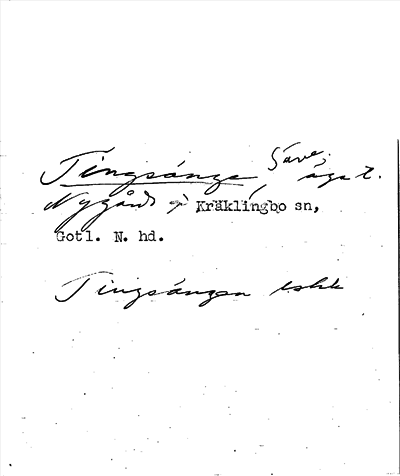 Tingsänge, Säve, ägot.
Nygård i Kräklingbo sn,
Gotl. N. hd.
Tingsängen